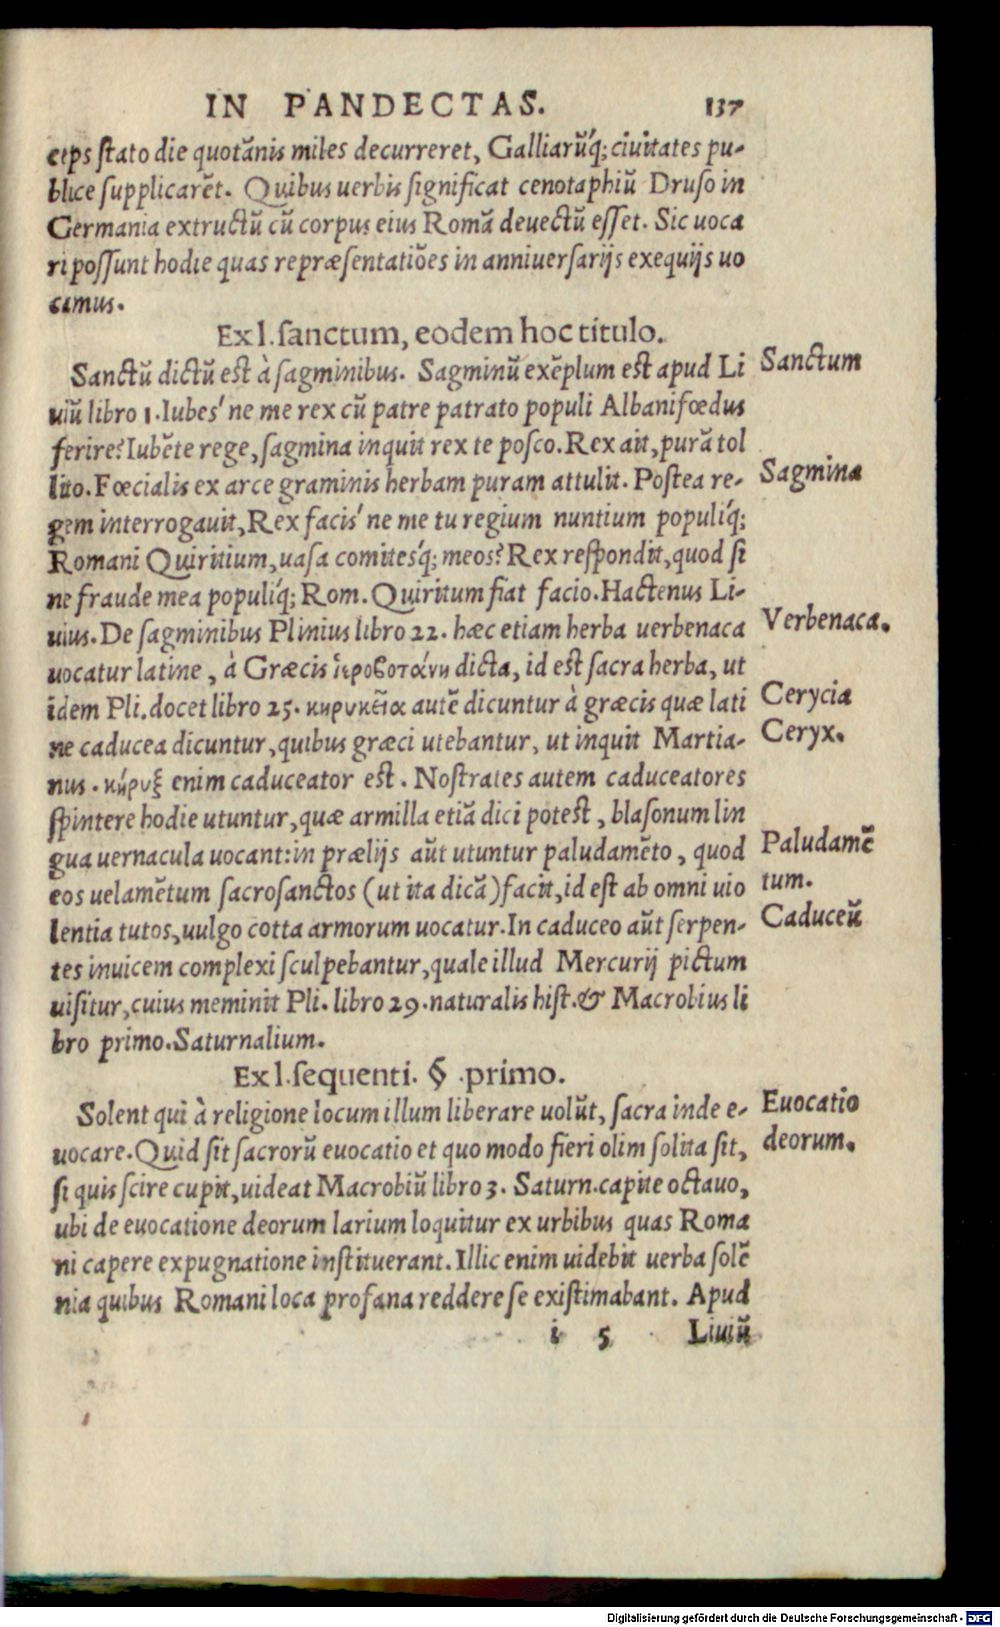 IN PANDECTAS. 137
ceps stato die quotānis miles decurreret, Galliarūq́; ciuitates pu-
blice supplicarēt. Quibus uerbis significat cenotaphiū Druso in
Germania extructū cū corpus eius Romā deuectū esset. Sic uoca
ri possunt hodie quas repræsentatiōes in anniuersarijs exequijs uo
camus.
Ex l. sanctum, eodem hoc titulo.
Sanctū dictū est à sagminibus. Sagminū exēplum est apud Li
uiū libro 1. Iubes' ne me rex cū patre patrato populi Albani fœdus
ferire? Iubēte rege, sagmina inquit rex te posco. Rex ait, purā tol
lito. Fœcialis ex arce graminis herbam puram attulit. Postea re-
gem interrogauit, Rex facis' ne me tu regium nuntium populiq́;
Romani Quiritium, uasa comitesq́; meos? Rex respondit, quod si
ne fraude mea populiq́; Rom. Quiritum fiat facio. Hactenus Li-
uius. De sagminibus Plinius libro 22. hæc etiam herba uerbenaca
uocatur latine, à Græcis ἱεροβοτάνη dicta, id est sacra herba, ut
idem Pli. docet libro 25. κηρυκεῖα autē dicuntur à græcis quæ lati
ne caducea dicuntur, quibus græci utebantur, ut inquit Martia-
nus. κήρυξ enim caduceator est. Nostrates autem caduceatores
spintere hodie utuntur, quæ armilla etiā dici potest, blasonum lin
gua uernacula uocant: in prælijs aūt utuntur paludamēto, quod
eos uelamētum sacrosanctos (ut ita dicā) facit, id est ab omni uio
lentia tutos, uulgo cotta armorum uocatur. In caduceo aūt serpen-
tes inuicem complexi sculpebantur, quale illud Mercurij pictum
uisitur, cuius meminit Pli. libro 29. naturalis hist. & Macrobius li
bro primo. Saturnalium.
Ex l. sequenti. § .primo.
Solent qui à religione locum illum liberare uolūt, sacra inde e-
uocare. Quid sit sacrorū euocatio et quo modo fieri olim solita sit,
si quis scire cupit, uideat Macrobiū libro 3. Saturn. capite octauo,
ubi de euocatione deorum larium loquitur ex urbibus quas Roma
ni capere expugnatione instituerant. Illic enim uidebit uerba solē
nia quibus Romani loca profana reddere se existimabant. Apud
i 5 Liuiū
Sanctum
Sagmina
Verbenaca.
Cerycia
Ceryx.
Paludamē
tum.
Caduceū
Euocatio
deorum.
Digitalisierung gefördert durch die Deutsche Forschungsgemeinschaft - DFG